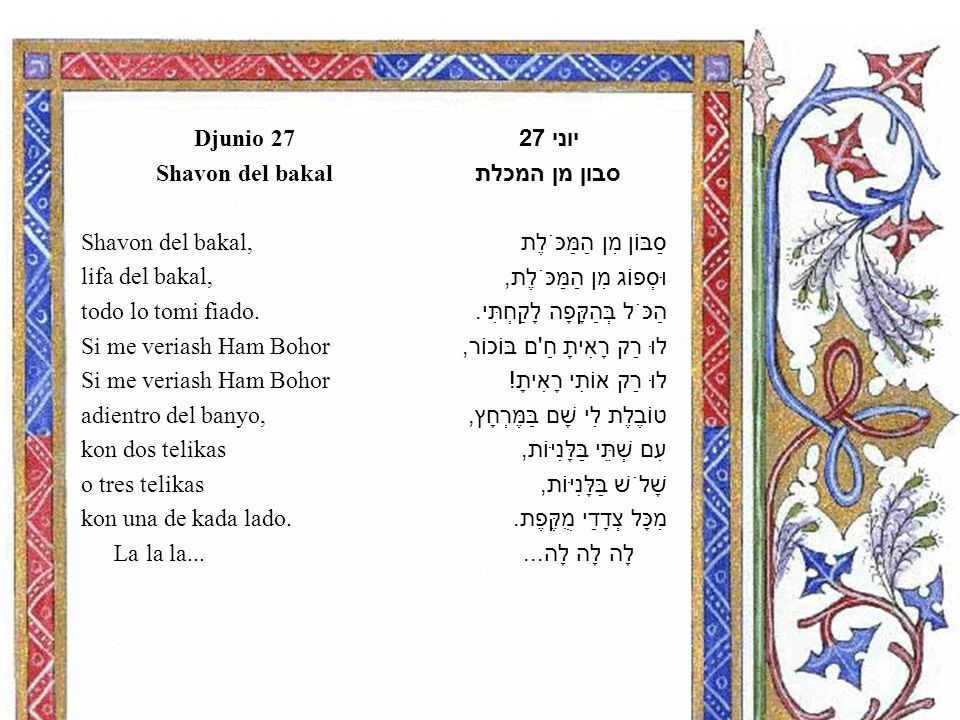 Djunio 27
Shavon del bakal
Shavon del bakal,
lifa del bakal,
todo lo tomi fiado.
Si me veriash Ham Bohor
Si me veriash Ham Bohor
adientro del banyo,
kon dos telikas
o tres telikas
kon una de kada lado.
La la la...
יוני 27
סבון מן המכלת
סַבּוֹן מִן הַמַּכֹּלֶת
וּסְפוֹג מִן הַמַּכֹּלֶת,
הַכֹּל בְּהַקָּפָה לָקַחְתִּי.
לוּ רַק רָאִיתָ חַ'ם בּוֹכוֹר,
לוּ רַק אוֹתִי רָאִיתָ!
טוֹבֶלֶת לִי שָׁם בַּמֶּרְחָץ,
עִם שְׁתֵּי בַּלָּנִיּוֹת,
שָׁלֹשׁ בַּלָּנִיּוֹת,
מִכָּל צְדָדַי מֻקֶּפֶת.
לָה לָה לָה...